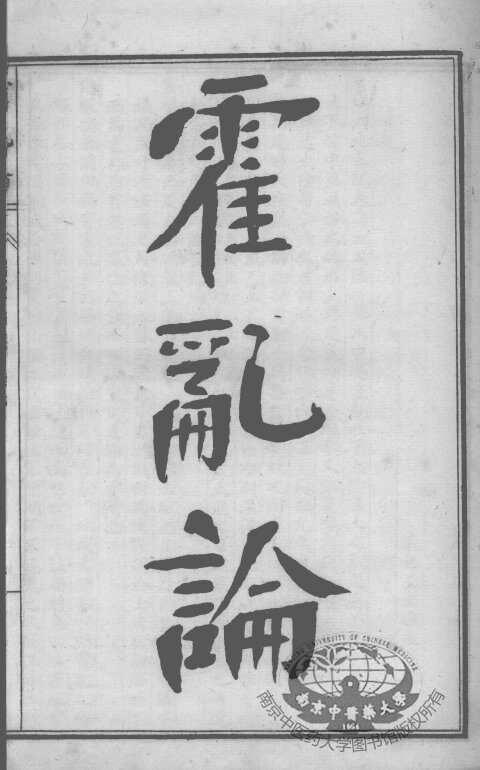 霍亂論
NANJING UNIVERSITY OF CHINESE MEDICINE
南京中醫藥大學
1954
南京中医药大学图书馆版权所有